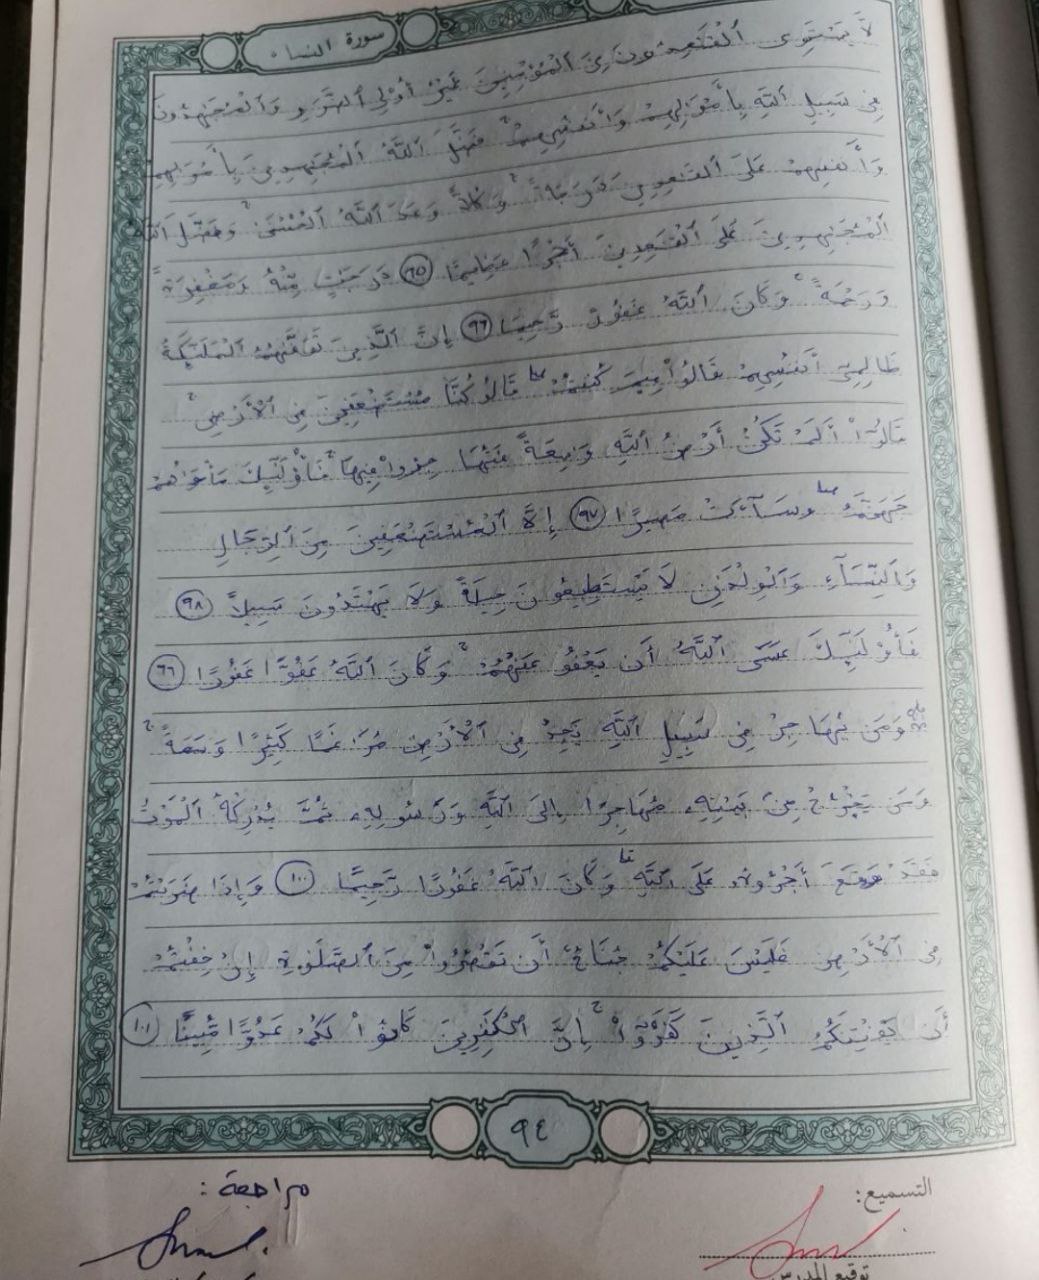 سورة النساء
لَّا يَسْتَوِى ٱلْقَٰعِدُونَ مِنَ ٱلْمُؤْمِنِينَ غَيْرُ أُو۟لِى ٱلضَّرَرِ وَٱلْمُجَٰهِدُونَ
فِى سَبِيلِ ٱللَّهِ بِأَمْوَٰلِهِمْ وَأَنفُسِهِمْ ۚ فَضَّلَ ٱللَّهُ ٱلْمُجَٰهِدِينَ بِأَمْوَٰلِهِمْ
وَأَنفُسِهِمْ عَلَى ٱلْقَٰعِدِينَ دَرَجَةً ۚ وَكُلًّا وَعَدَ ٱللَّهُ ٱلْحُسْنَىٰ ۚ وَفَضَّلَ ٱللَّهُ
ٱلْمُجَٰهِدِينَ عَلَى ٱلْقَٰعِدِينَ أَجْرًا عَظِيمًا ٩٥ دَرَجَٰتٍ مِّنْهُ وَمَغْفِرَةً
وَرَحْمَةً ۚ وَكَانَ ٱللَّهُ غَفُورًا رَّحِيمًا ٩٦ إِنَّ ٱلَّذِينَ تَوَفَّىٰهُمُ ٱلْمَلَٰٓئِكَةُ
ظَالِمِىٓ أَنفُسِهِمْ قَالُوا۟ فِيمَ كُنتُمْ ۖ قَالُوا كُنَّا مُسْتَضْعَفِينَ فِى ٱلْأَرْضِ ۚ
قَالُوٓا۟ أَلَمْ تَكُنْ أَرْضُ ٱللَّهِ وَٰسِعَةً فَتُهَا جِرُوا۟ فِيهَا ۚ فَأُو۟لَٰٓئِكَ مَأْوَىٰهُمْ
جَهَنَّمُ ۖ وَسَآءَتْ مَصِيرًا ٩٧ إِلَّا ٱلْمُسْتَضْعَفِينَ مِنَ ٱلرِّجَالِ
وَٱلنِّسَآءِ وَٱلْوِلْدَٰنِ لَا يَسْتَطِيعُونَ حِيلَةً وَلَا يَهْتَدُونَ سَبِيلًا ٩٨
فَأُو۟لَٰٓئِكَ عَسَى ٱللَّهُ أَن يَعْفُوَ عَنْهُمْ ۚ وَكَانَ ٱللَّهُ عَفُوًّا غَفُورًا ٩٩
۞ وَمَن يُهَاجِرْ فِى سَبِيلِ ٱللَّهِ يَجِدْ فِى ٱلْأَرْضِ مُرَٰغَمًا كَثِيرًا وَسَعَةً ۚ
وَمَن يَخْرُجْ مِنۢ بَيْتِهِۦ مُهَاجِرًا إِلَى ٱللَّهِ وَرَسُولِهِۦ ثُمَّ يُدْرِكْهُ ٱلْمَوْتُ
فَقَدْ وَقَعَ أَجْرُهُۥ عَلَى ٱللَّهِ ۗ وَكَانَ ٱللَّهُ غَفُورًا رَّحِيمًا ١٠٠ وَإِذَا ضَرَبْتُمْ
فِى ٱلْأَرْضِ فَلَيْسَ عَلَيْكُمْ جُنَاحٌ أَن تَقْصُرُوا۟ مِنَ ٱلصَّلَوٰةِ إِنْ خِفْتُمْ
أَن يَفْتِنَكُمُ ٱلَّذِينَ كَفَرُوٓا۟ ۚ إِنَّ ٱلْكَٰفِرِينَ كَانُوا۟ لَكُمْ عَدُوًّا مُّبِينًا ١٠١
٩٤
التسميع:
مراجعة:
توقيع المدرس